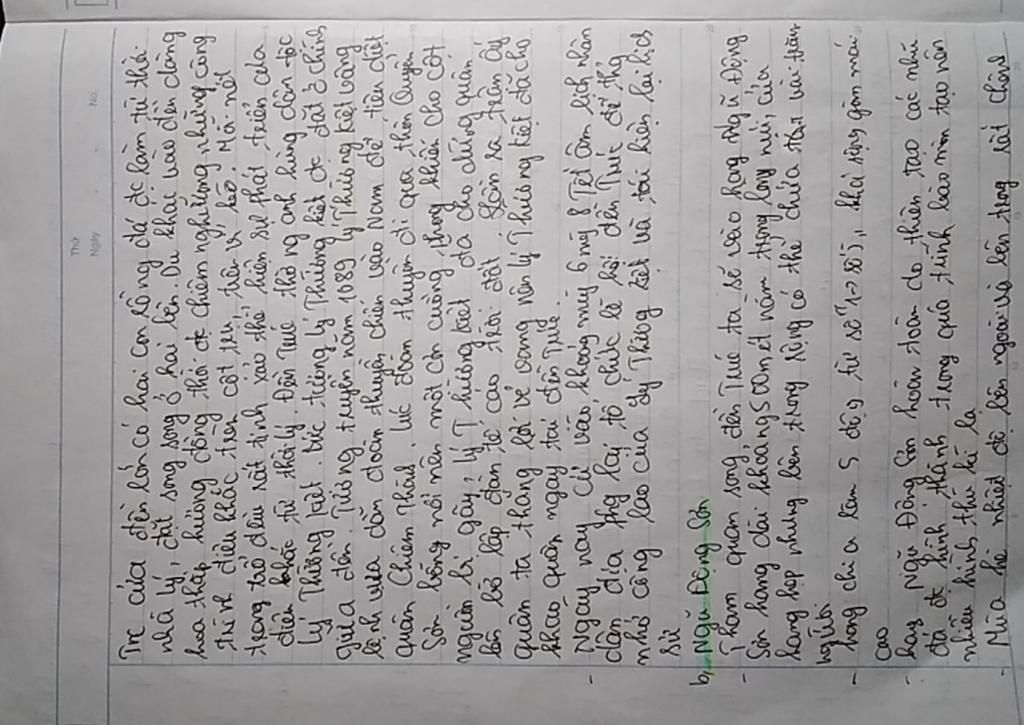 Thứ
Ngày
No.
Trc cửa đền lớn có hai con rồng đá đc làm từ thời
nhà lý, đặt song song ở hai bên. Du khai vào đền dâng
hoa thắp hương đồng thời đc chiêm ngưỡng những công
trình điêu khắc trên cột trụ, trên vì kèo. Mỗi nét
trạng trổ đều rất tinh xảo thể hiện sự phát triển của
điêu khắc từ thời lý. Đền Trúc thờ ng anh hùng dân tộc
Lý Thường Kiệt. Bức tượng Lý Thường Kiệt đc đặt ở chính
giữa đền. Tương truyền năm 1089 lý Thường Kiệt vâng
lệnh vua dẫn đoàn thuyền chiến vào Nam để tiêu diệt
quân Chiêm Thành. Lúc đoàn thuyền đi qua thôn Quyển
Sơn bỗng nổi nên một cơn cuồng phong khiến cho cột
nguồm bị gãy, lý Thường Kiệt đã cho dừng quân
lên bờ lập đàn tế cáo trời đất. Sau trận ấy
quân ta thắng lợi vẻ vang nên lý Thường Kiệt đã cho
khao quân ngay tại đền Trúc.
- Ngày nay cứ vào khoảng mùng 6 mùng 8 Tết âm lịch nhân
dân địa phg lại tổ chức lễ hội đền Trúc để tg
nhớ công lao của Lý Thường Kiệt và tái hiện lại lịch
sử
b, Ngũ Động Sơn
- Tham quan song đền Trúc ta sẽ vào hang Ngũ Động
Sơn hang dài khoảng 500 mét nằm trong lòng núi, cửa
hang hẹp nhưng bên trong rộng có thể chứa tận vài trăm
người.
- hang chia làm 5 động từ số "1->số 5", khá rộng gồm mái
cao
- hang Ngũ Động Sơn hoàn toàn do thiên tạo các nhũ
đá đc hình thành trong quá trình bào mòn tạo nên
nhiều hình thù kì lạ
- Mùa hè nhiệt độ bên ngoài và bên trong rất chênh